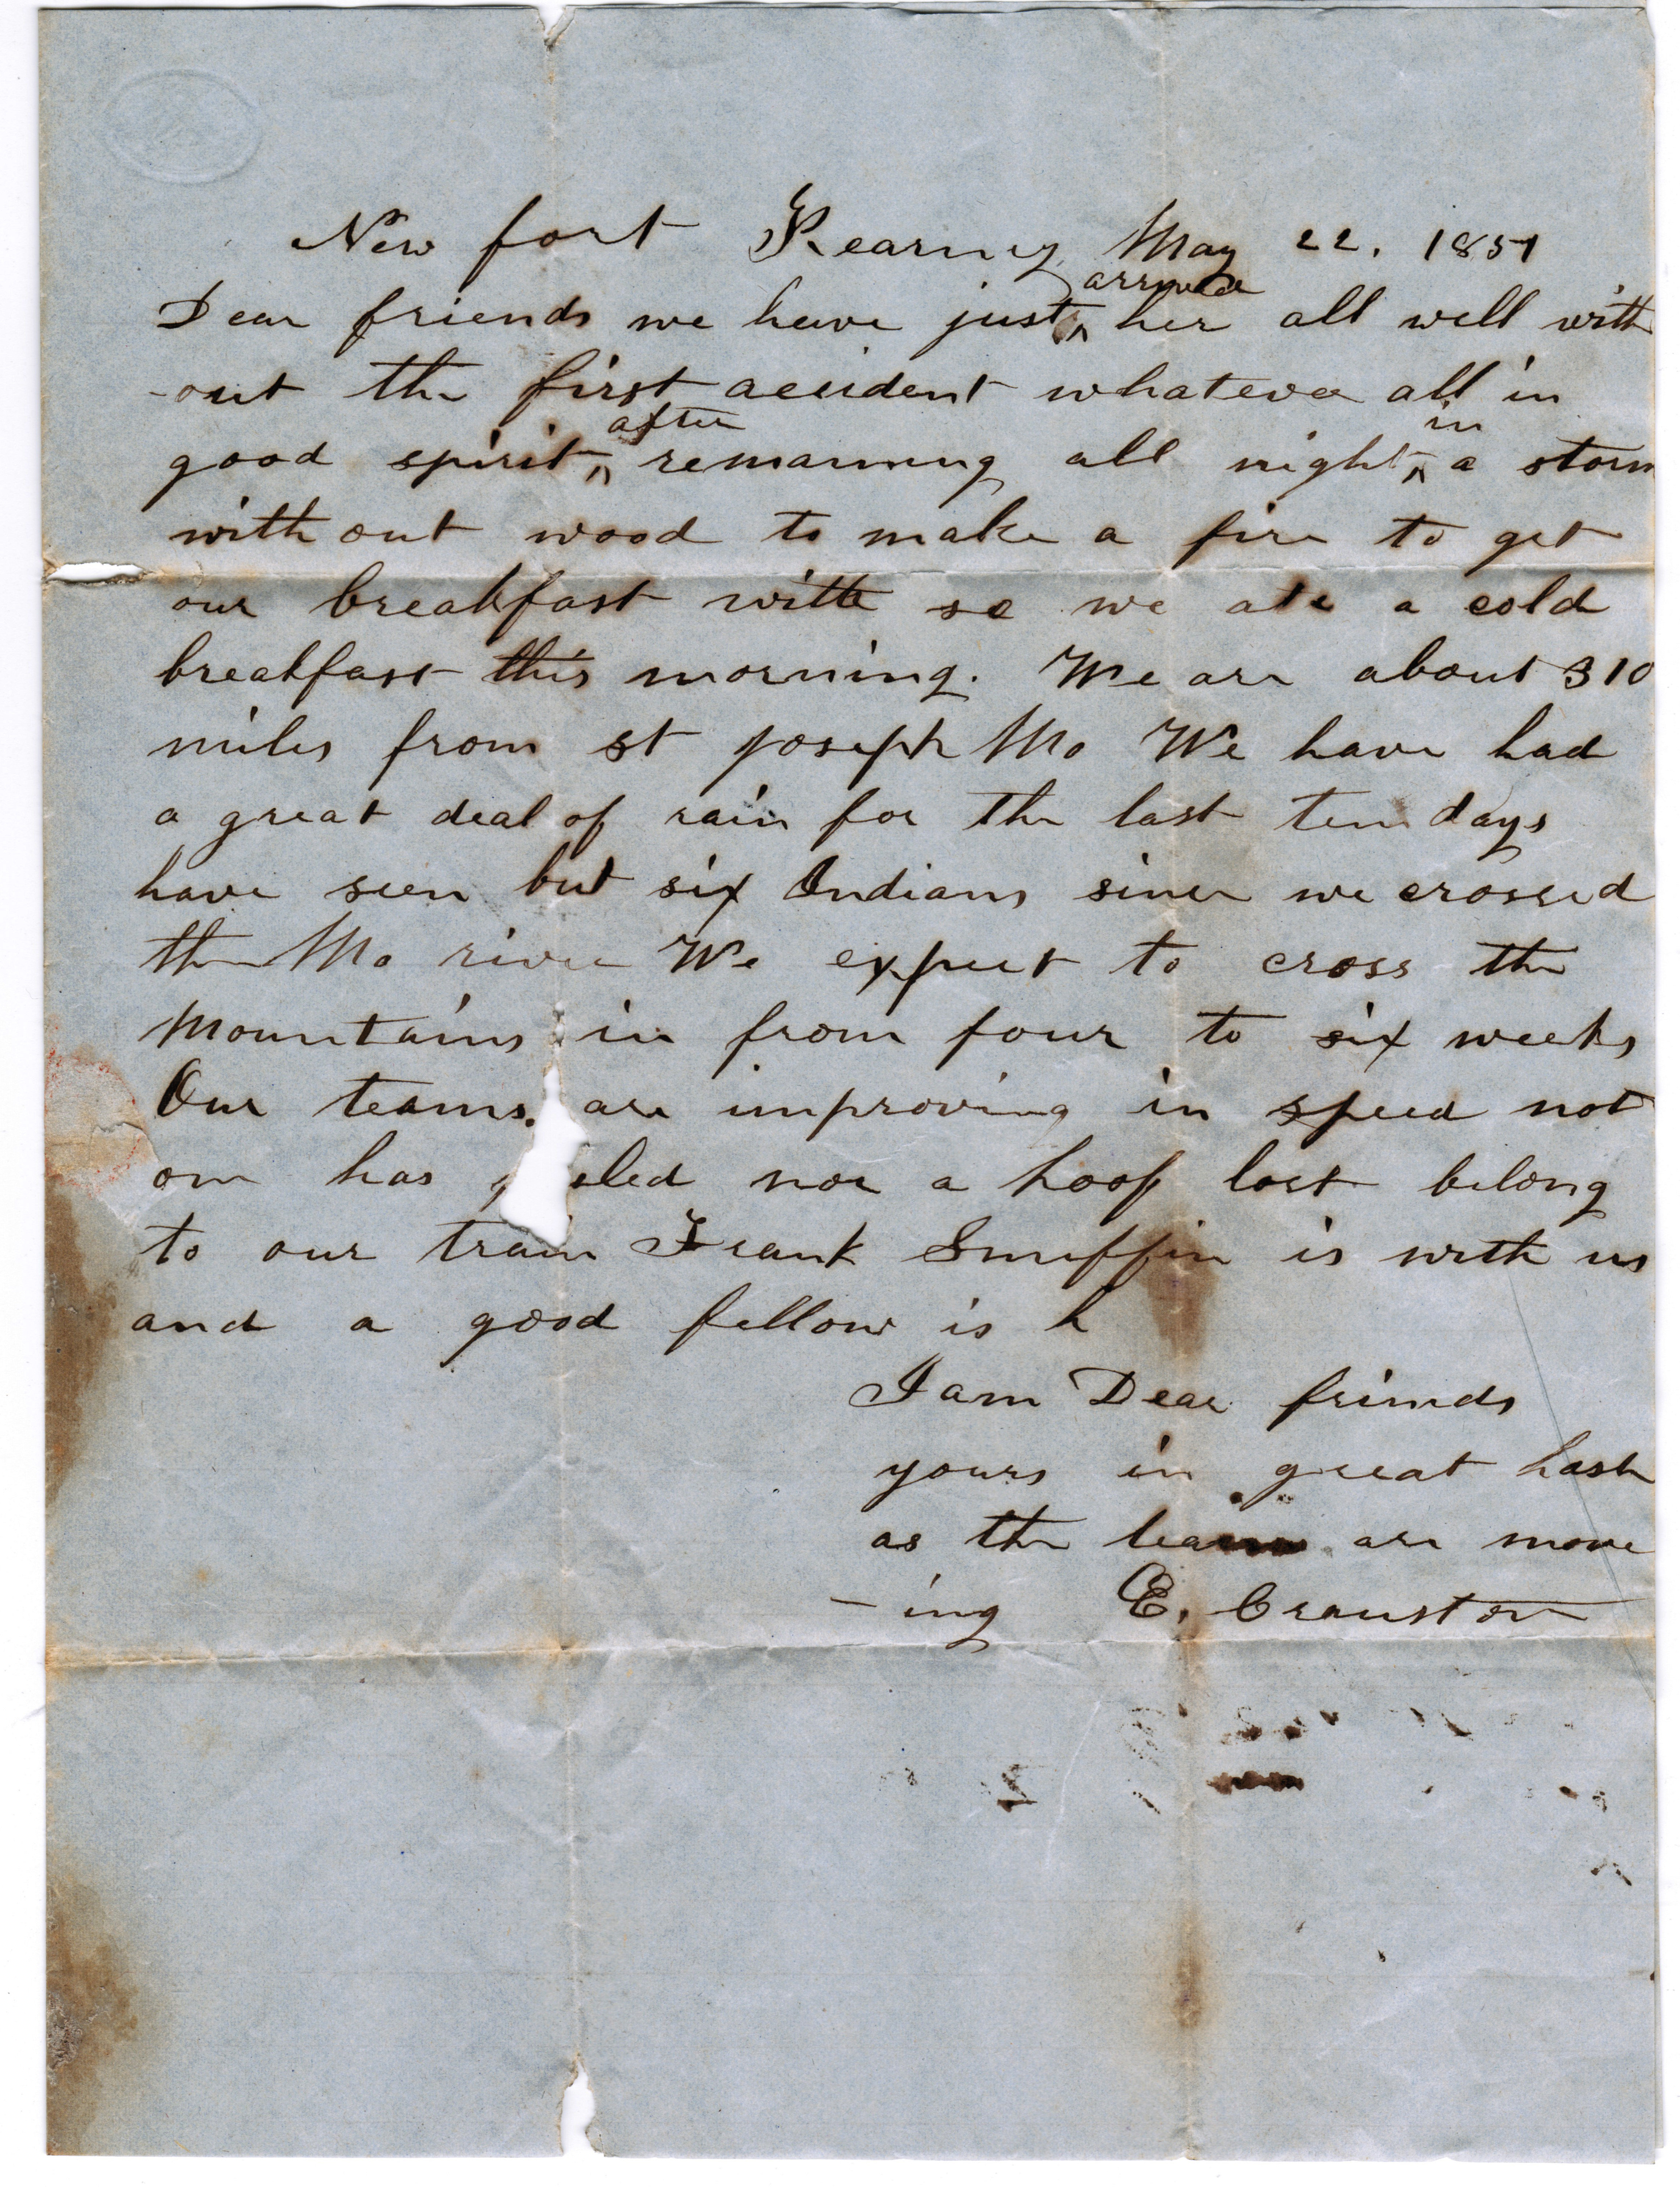 New fort Kearny May 22. 1851
Dear friends we have just arrived her all well with
-out the first accident whatever all in
good spirit after remaining all night in a storm
with out wood to make a fire to get
our breakfast with so we ate a cold
breakfast this morning. We are about 310
miles from st Joseph Mo We have had
a great deal of rain for the last ten days
have seen but six Indians since we crossed
the Mo river We expect to cross the
Mountains in from four to six weeks
Our teams. are improving in speed not
one has nor a hoof lost belong
to our train Frank Smiffin is with us
and a good fellow is h
I am Dear friends
yours in great haste
as the teams are move
-ing E. Cranston